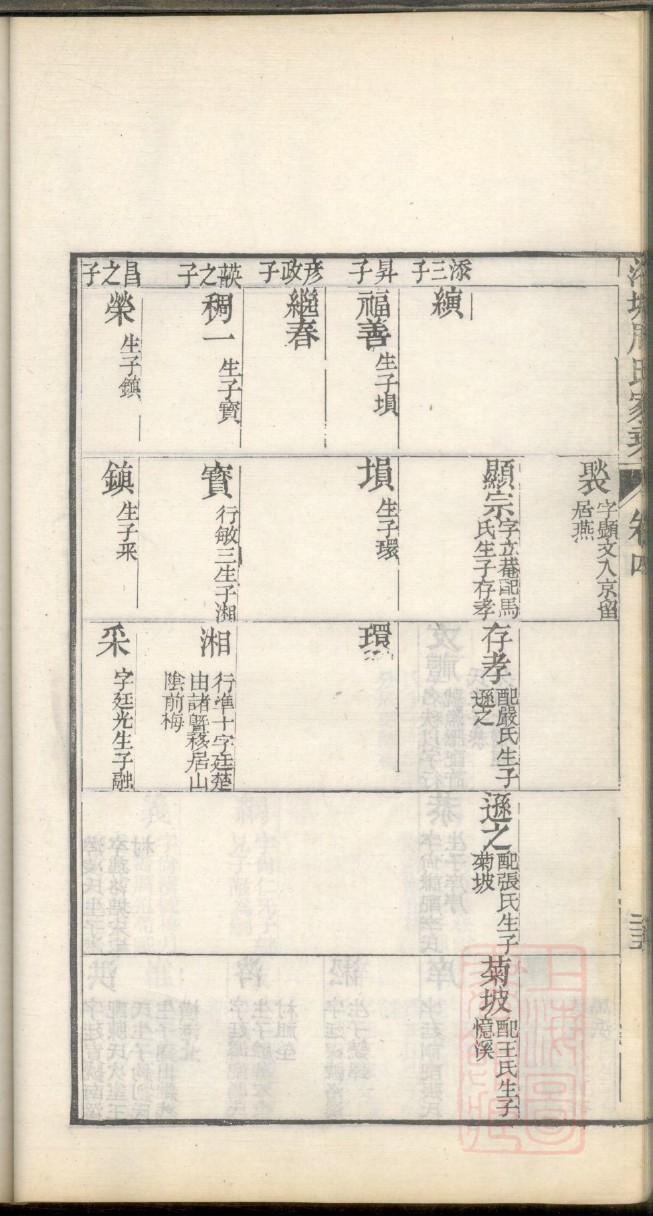 周氏家乘
卷四
褧
字顯文入京留
居燕
添三子
縯
顯宗
字立菴配馬
氏生子存孝
存孝
配嚴氏生子
遜之
遜之
配張氏生子
菊坡
菊坡
配王氏生子
憶溪
昇子
福善
生子塤
塤
生子環
環
彥政子
繼春
之子
稠一
生子寳
寳
行敏三生子湘
湘
行準十字廷楚
由諸曁移居山
陰前梅
昌之子
榮
生子鎮
鎮
生子采
采
字廷光生子融